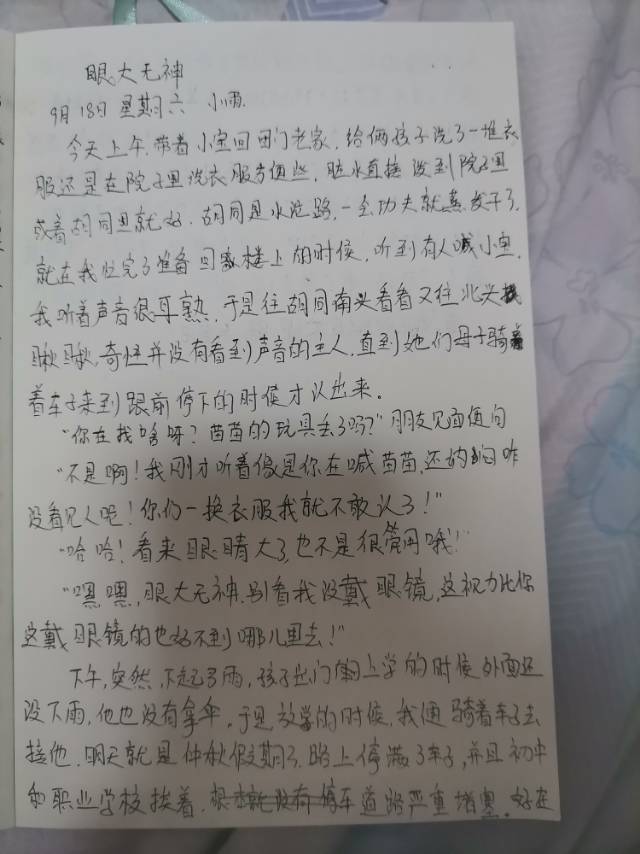 眼大无神
9月18日 星期六 小雨.
今天上午,带着小宝回西门老家,给俩孩子洗了一堆衣
服还是在院子里洗衣服方便些,脏水直接泼到院子里
或者胡同里就好.胡同是水泥路,一会功夫就蒸发干了.
就在我忙完了准备回家楼上的时候,听到有人喊小宝,
我听着声音很耳熟,于是往胡同南头看看又往北头
瞅瞅,奇怪并没有看到声音的主人,直到她们母子骑
着车子来到跟前停下的时候才认出来。
"你在找啥呀?苗苗的玩具丢了吗?"朋友见面便问
"不是啊!我刚才听着像是你在喊苗苗,还纳闷咋
没看见人呢!你们一换衣服我就不敢认了!"
"哈哈!看来眼睛大了,也不是很管用哦!"
"嘿嘿,眼大无神.别看我没戴眼镜,这视力比你
这戴眼镜的也好不到哪儿里去!"
下午,突然,下起了雨,孩子出门上学的时候外面还
没下雨,他也没有拿伞,于是放学的时候,我便骑着车子去
接他.明天就是仲秋假期了.路上停满了车子,并且初中
和职业学校挨着,道路严重堵塞.好在